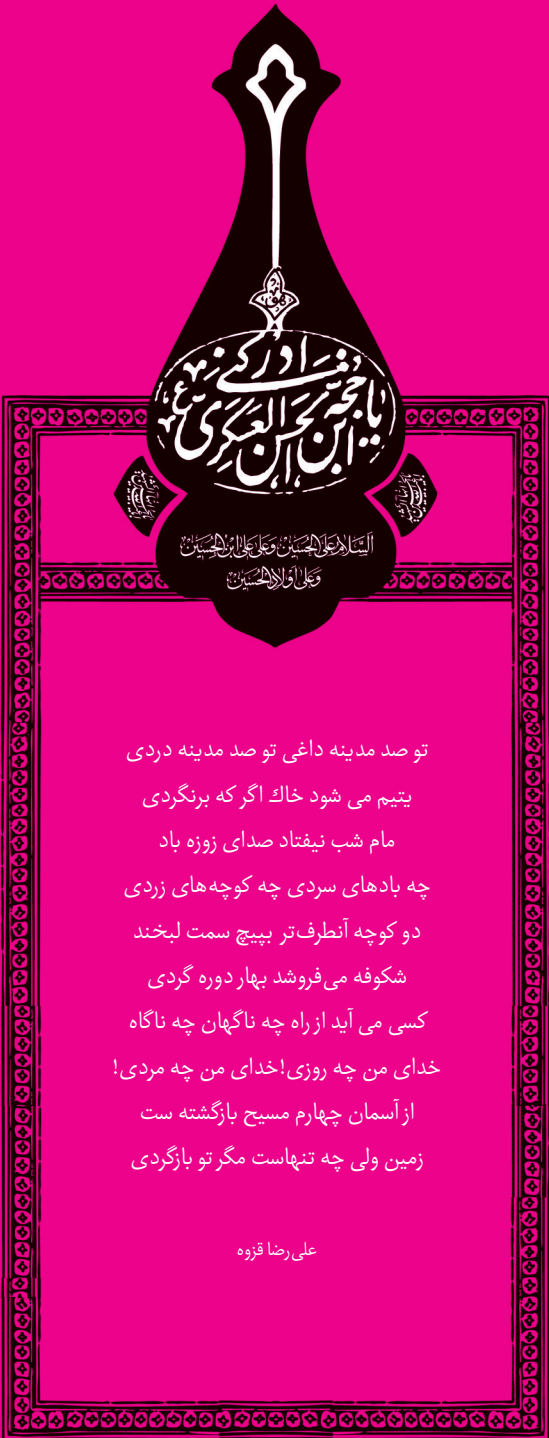 یا حجة ابن الحسن العسکری ادرکنی
اَلسَّلامُ عَلَی الحُسَین وَعَلی عَلی ابن الحُسَین
وَعَلی اَولادِ الحُسَین
تو صد مدینه داغی تو صد مدینه دردی
یتیم می شود خاك اگر که برنگردی
مام شب نیفتاد صدای زوزه باد
چه بادهای سردی چه کوچه‌های زردی
دو کوچه آنطرف‌تر بپیچ سمت لبخند
شکوفه می‌فروشد بهار دوره گردی
کسی می آید از راه چه ناگهان چه ناگاه
خدای من چه روزی!خدای من چه مردی!
از آسمان چهارم مسیح بازگشته ست
زمین ولی چه تنهاست مگر تو بازگردی
علی‌رضا قزوه